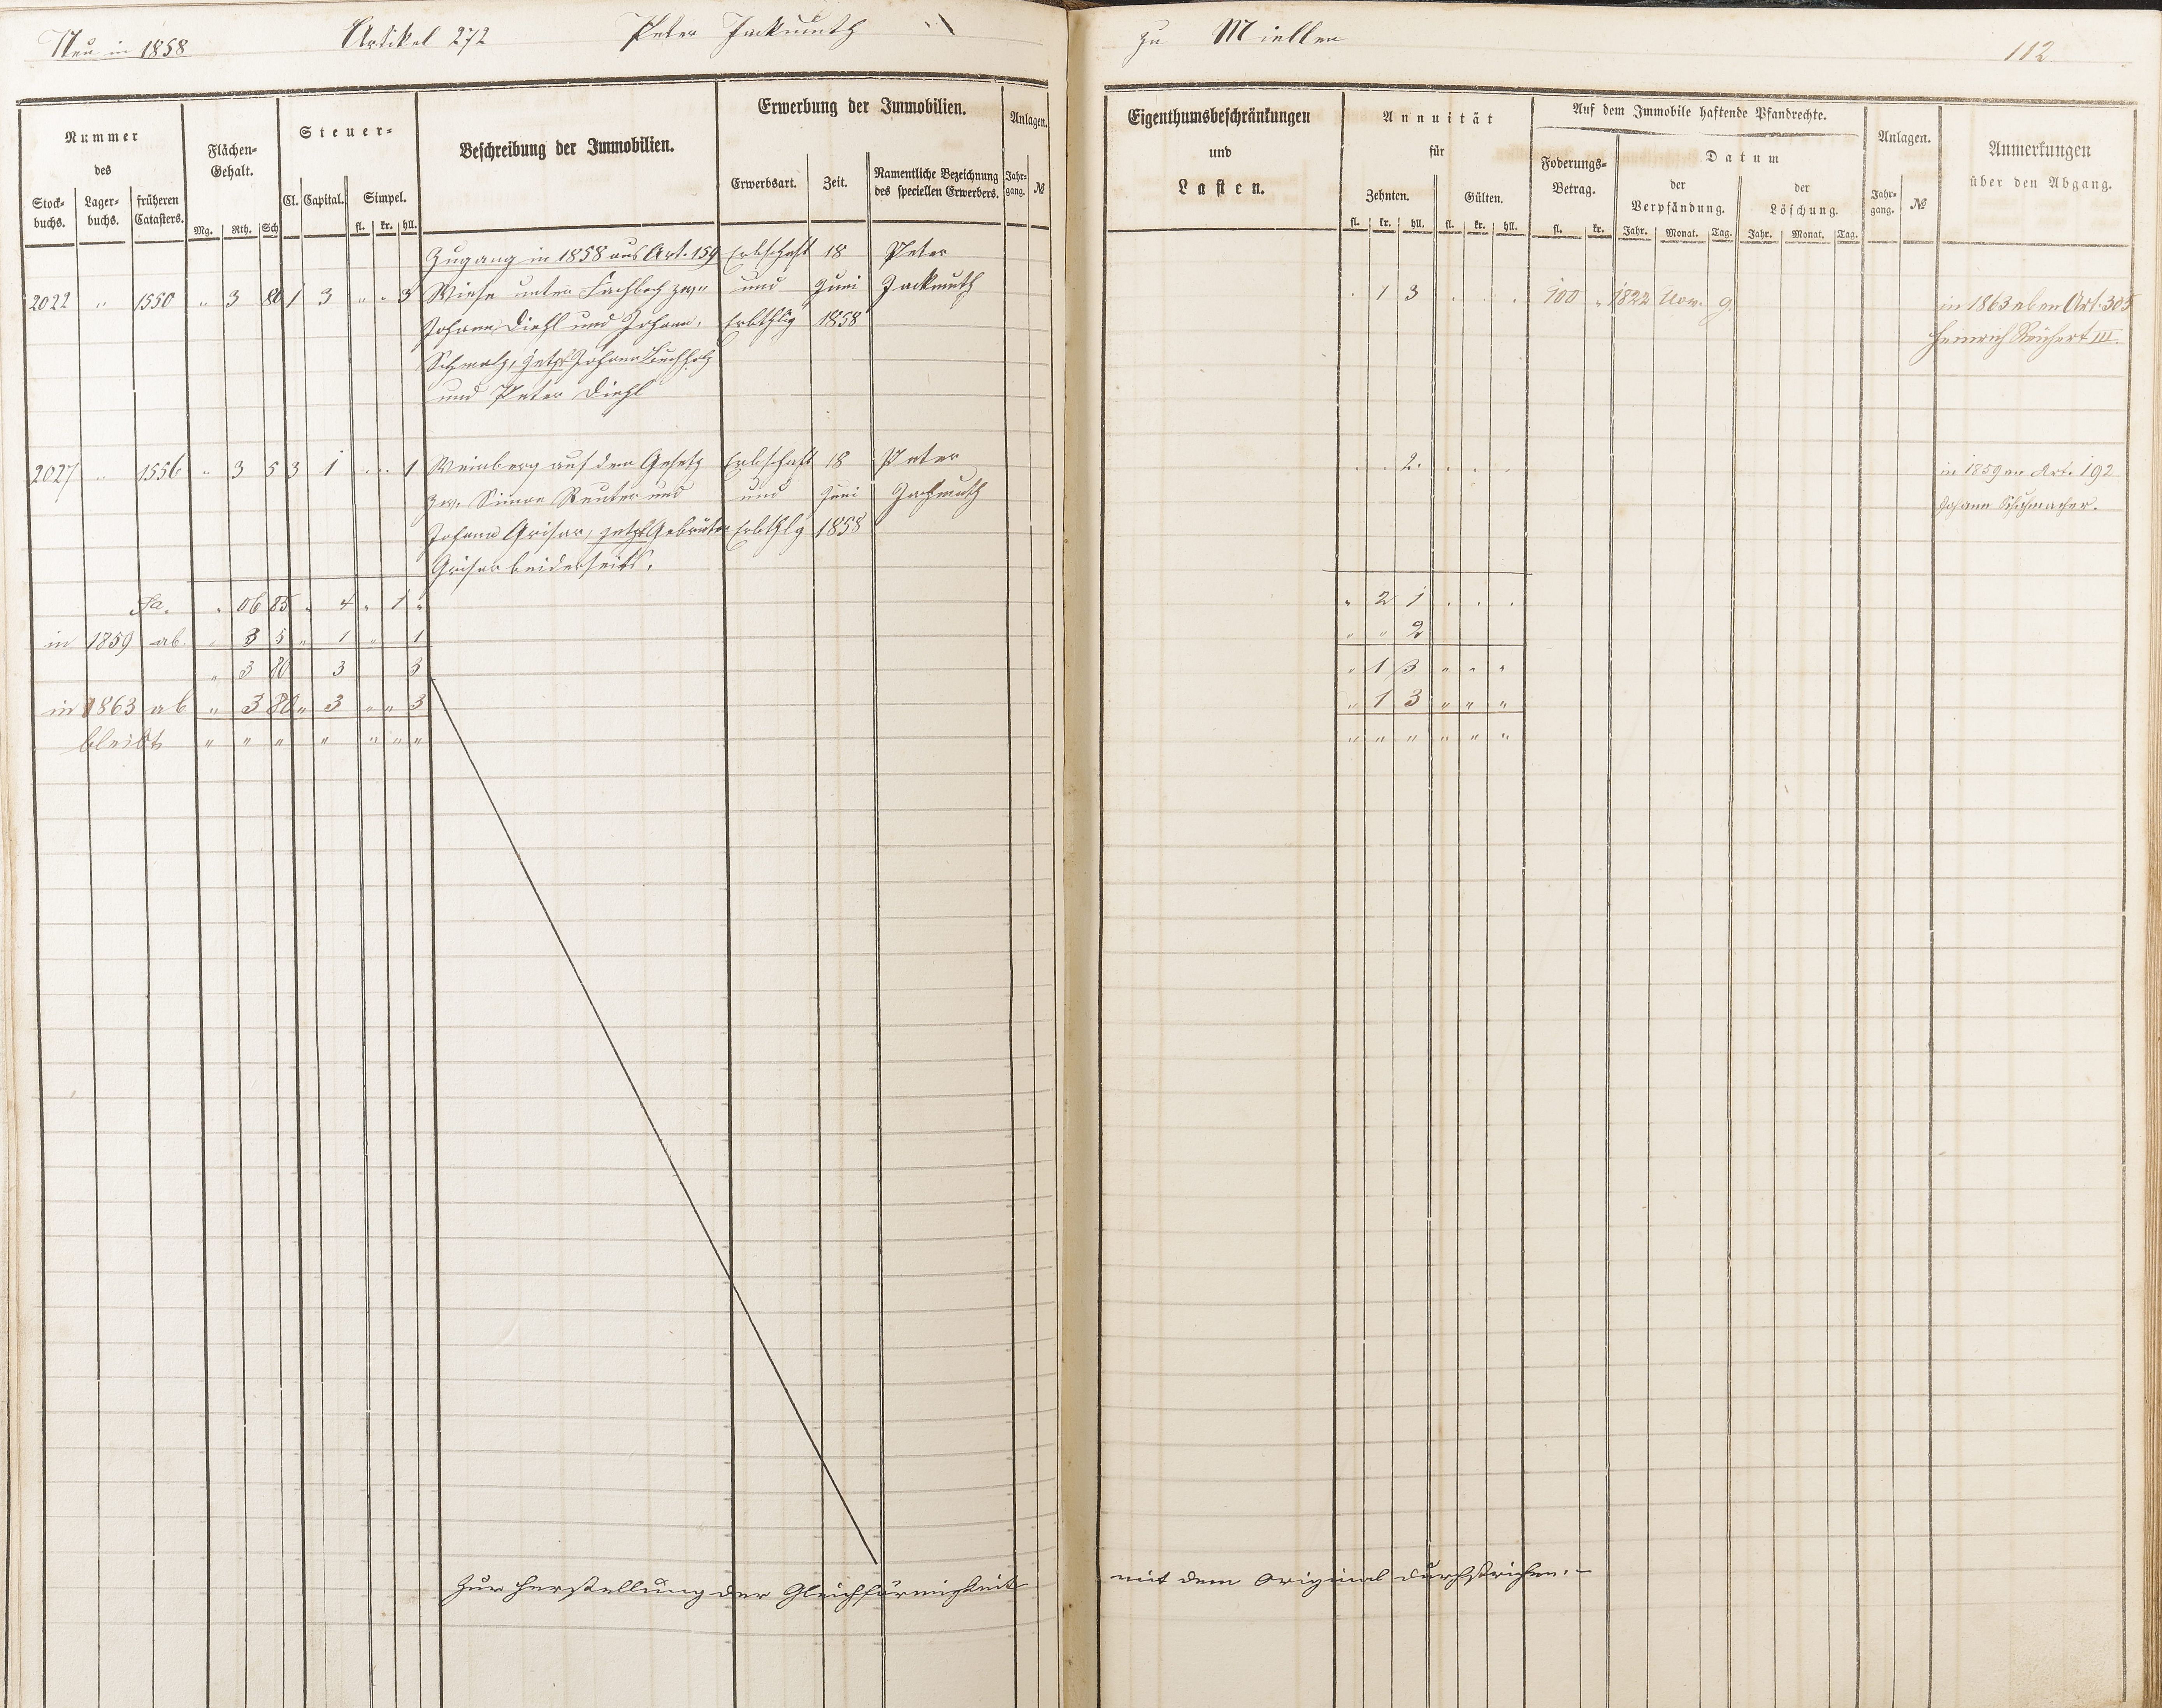 Neu in 1858 Artikel 272 Peter Jackmuth
Nummer des
Stockbuchs. Lagerbuchs. früheren Catasters.
Flächen-Gehalt.
Mg. Rth. Sch
Steuer-
Cl. Capital. Simpel.
fl. kr. hll.
Beschreibung der Immobilien.
Erwerbung der Immobilien.
Erwerbsart. Zeit. Namentliche Bezeichnung des speciellen Erwerbers.
Anlagen.
Jahrgang. №
Zugang in 1858 aus Art. 159 Erbschaft 18 Peter
2022 " 1550 " 3 80 1 3 " " 3 Wiese unter Fachbach zw. und Juni Jackmuth
Johann Diehl und Johann Erbthlg 1858
Schmalz, jetzt Johann Buchholz
und Peter Diehl
2027 " 1556 " 3 5 3 1 " " 1 Weinberg auf dem Gesetz Erbschaft 18 Peter
zw. Simon Reuter und und Juni Jackmuth
Johann Grisar, jetzt Gebrüder Erbthlg 1858
Grisar beiderseits.
Sa. " 06 85 " 4 " 1 "
in 1859 ab " 3 5 " 1 " 1
" 3 80 3 3
in 1863 ab " 3 80 " 3 " " 3
bleibt " " " " " " "
Zur Herstellung der Gleichförmigkeit
zu Miellen 112
Eigenthumsbeschränkungen und Lasten.
Annuität für
Zehnten. Gülten.
fl. kr. hll. fl. kr. hll.
Auf dem Immobile haftende Pfandrechte.
Foderungs-Betrag.
fl. kr.
Datum
der Verpfändung. der Löschung.
Jahr. Monat. Tag. Jahr. Monat. Tag.
Anlagen.
Jahrgang. №
Anmerkungen
über den Abgang.
. 1 3 . . . 100 " 1822 Nov. 9. in 1863 ab an Art. 305
Heinrich Reichert III.
. . 2. . . . in 1859 an Art. 192
Johann Schuhmacher.
" 2 1 . . .
" " 2
" 1 3 " " "
" 1 3 " " "
" " " " " "
mit dem Original durchstrichen. –